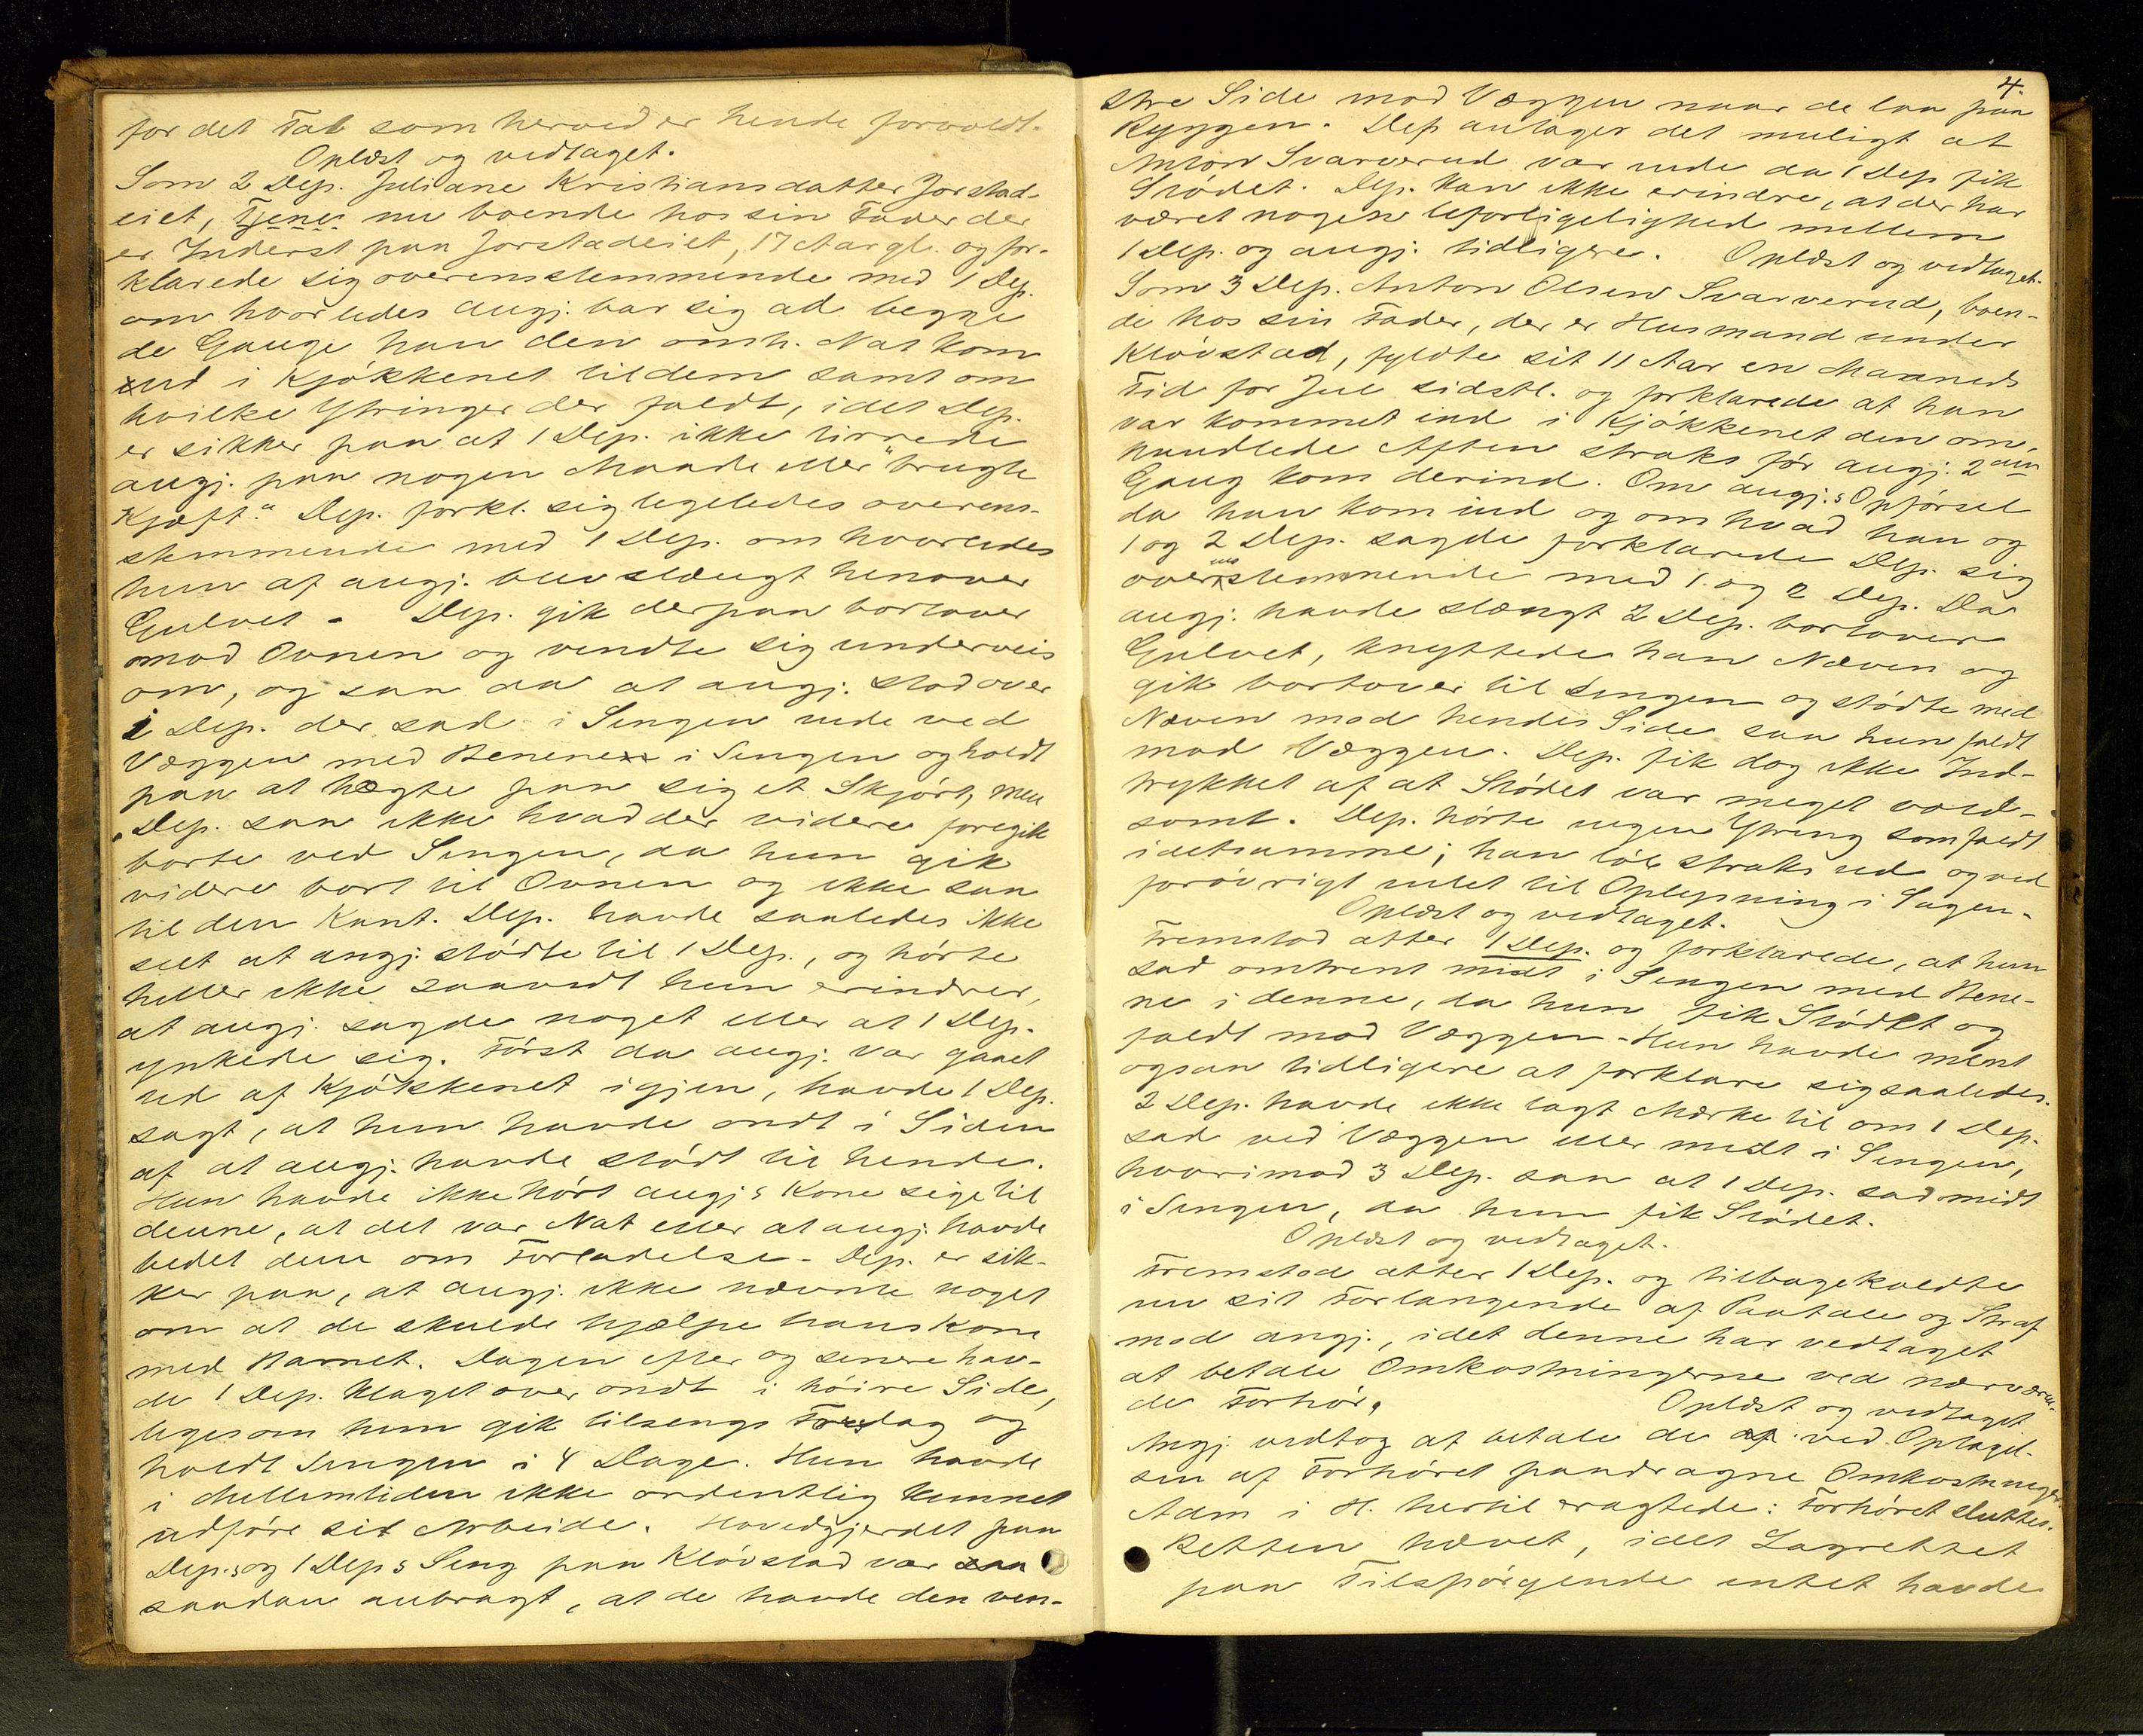 for det Tab som herved er hende forvoldt.
Oplæst og vedtaget.
Som 2 Dep. Juliane Kristiansdatter Jorstad-
eiet, Tjener nu boende hos sin Fader der
er Inderst paa Jorstadeiet, 17 Aar gl. og for-
klarede sig overensstemmende med 1 Dep.
om hvorledes angj. bar sig ad begge
de Gange han den omh. Nat kom
ind i Kjøkkenet til dem samt om
hvilke Ytringer der faldt, idet Dep.
er sikker paa at 1 Dep. ikke tirrede
angj. paa nogen Maade eller "brugte
Kjæft." Dep. forkl. sig ligeledes overens-
stemmende med 1 Dep. om hvorledes
hun af angj. blev slængt henover
Gulvet - Dep. gik derpaa bortover
mod Ovnen og vendte sig underveis
om, og saa da at angj. stod over
1 Dep. der sad i Sengen inde ved
Væggen med Benene i Sengen og holdt
paa at hægte paa sig et Skjørt, men
Dep. saa ikke hvad der videre foregik
borte ved Sengen, da hun gik
videre bort til Ovnen og ikke saa
til den Kant. Dep. havde saaledes ikke
seet at angj. stødte til 1 Dep., og hørte
heller ikke saavidt hun erindrer,
at angj. sagde noget eller at 1 Dep.
ynkede sig. Først da angj. var gaaet
ud af Kjøkkenet igjen, havde 1 Dep.
sagt, at hun havde ondt i Siden
af at angj. havde stødt til hende.
Hun havde ikke hørt angj.s Kone sige til
denne, at det var Nat eller at angj. havde
bedet dem om Forladelse - Dep. er sik-
ker paa, at angj. ikke nævnte noget
om at de skulde hjælpe hans Kone
med Barnet. Dagen efter og senere hav-
de 1 Dep. klaget over ondt i høire Side,
ligesom hun gik tilsengs Tirsdag og
holdt Sengen i 4 Dage. Hun havde
i Mellemtiden ikke ordentlig kunnet
udføre sit Arbeide. Hovedgjerdet paa
Dep.s og 1 Deps Seng paa Kløvstad var
saadan anbragt, at de havde den ven-
4.
stre Side mod Væggen naar de laa paa
Ryggen. Dep antager det muligt at
Anton Svarverud var inde da 1 Dep fik
Stødet. Dep. kan ikke erindre, at der har
været nogen Uforligelighed mellem
1 Dep. og angj. tidligere. Oplæst og vedtaget.
Som 3 Dep. Anton Olsen Svarverud, boen-
de hos sin Fader, der er Husmand under
Kløvstad, fyldte sit 11 Aar en Maaneds
Tid før Jul sidstl. og forklarede at han
var kommet ind i Kjøkkenet den om-
handlede Aften straks før angj. 2den
Gang kom derind. Om angj.s Opførsel
da han kom ind og om hvad han og
1 og 2 Dep. sagde forklarede Dep. sig
overensstemmende med 1 og 2 Dep. Da
angj. havde slængt 2 Dep. bortover
Gulvet, knyttede han Næven og
gik bortover til Sengen og stødte med
Næven mod hendes Side saa hun faldt
mod Væggen. Dep. fik dog ikke Ind-
trykket af at Stødet var meget vold-
somt. Dep. hørte ingen Ytring som faldt
idetsamme; han løb straks ud og ved
forøvrigt intet til Oplysning i Sagen.
Oplæst og vedtaget.
Fremstod atter 1 Dep. og forklarede, at hun
sad omtrent midt i Sengen med Bene-
ne i denne, da hun fik Stødet og
faldt mod Væggen - Hun havde ment
ogsaa tidligere at forklare sig saaledes.
2 Dep. havde ikke lagt Mærke til om 1 Dep.
sad ved Væggen eller midt i Sengen,
hvorimod 3 Dep. saa at 1 Dep. sad midt
i Sengen, da hun fik Stødet.
Oplæst og vedtaget.
Fremstod atter 1 Dep. og tilbagekaldte
nu sit Forlangende af Paatale og Straf
mod angj., idet denne har vedtaget
at betale Omkostningerne ved nærværen-
de Forhør. Oplæst og vedtaget
Angj. vedtog at betale de ved Optagel-
sen af Forhøret paadragne Omkostninger.
Adm i H. hertil eragtede: Forhøret sluttes.
Retten hævet, idet Lagrettet
paa Tilspørgende intet havde